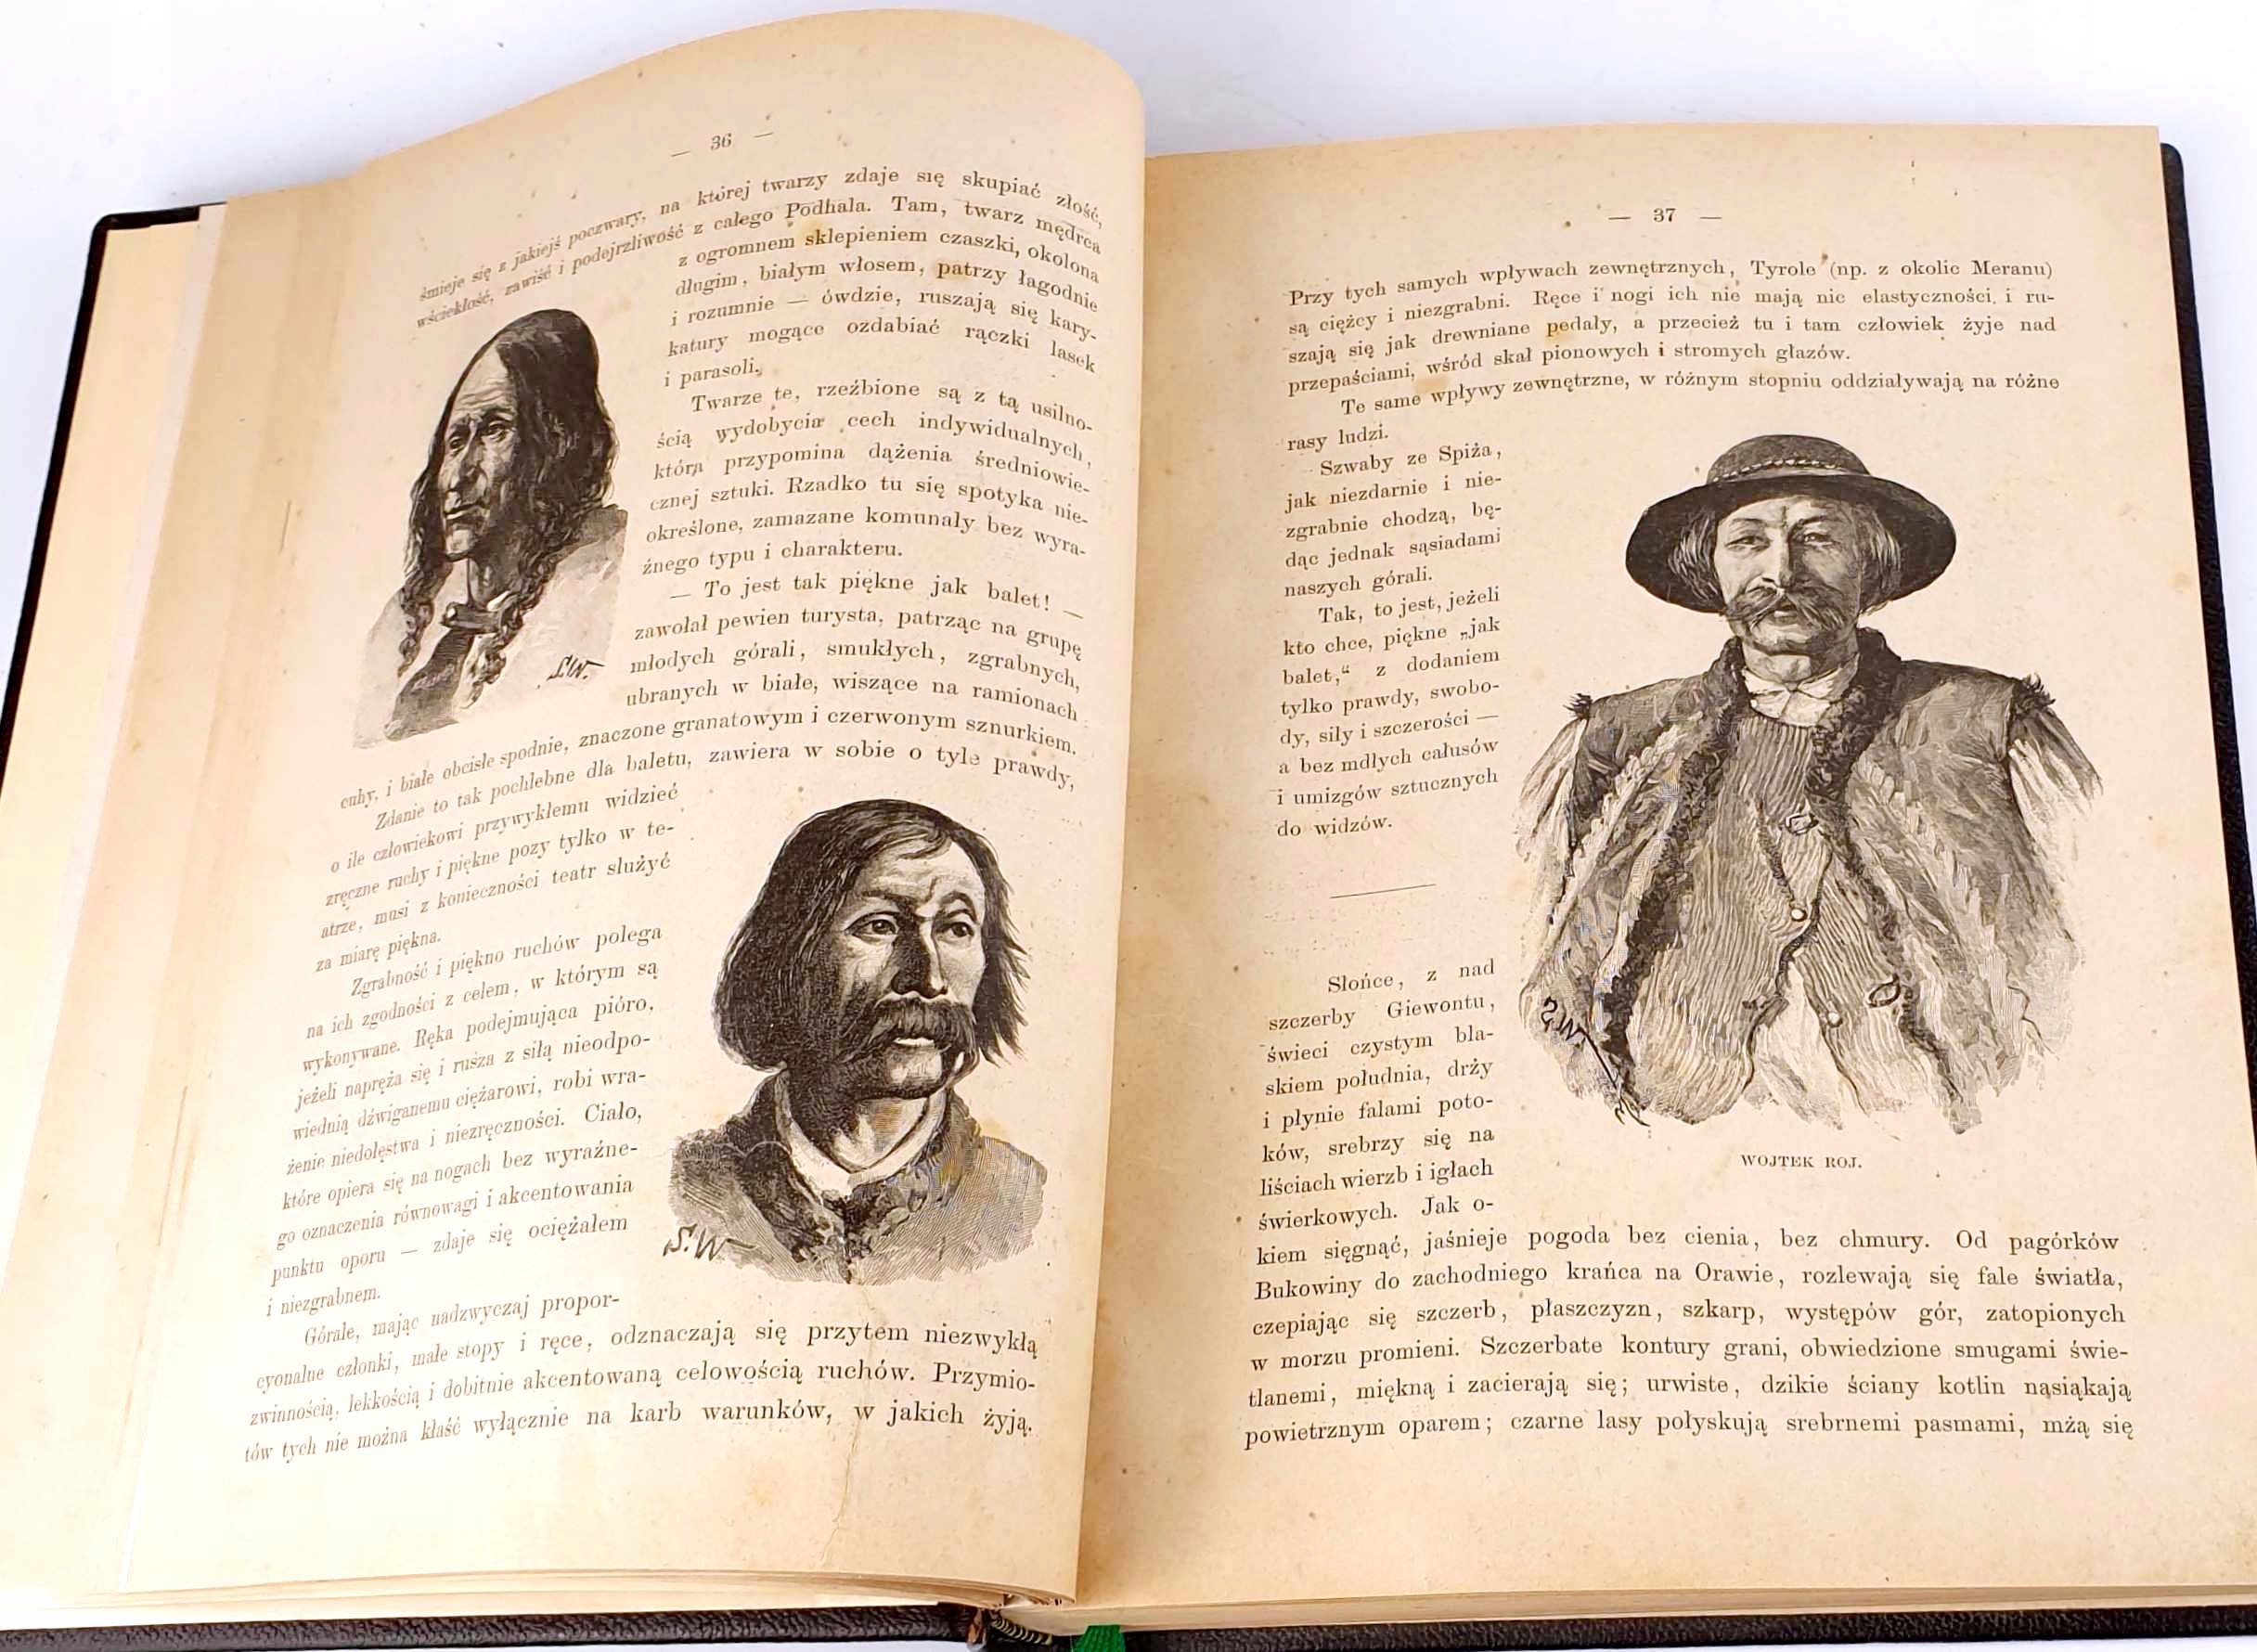 — 36 —
śmieje się z jakiejś poczwary, na której twarzy zdaje się skupiać złość,
wściekłość, zawiść i podejrzliwość z całego Podhala. Tam, twarz mędrca
z ogromnem sklepieniem czaszki, okolona
długim, białym włosem, patrzy łagodnie
i rozumnie — ówdzie, ruszają się kary-
katury mogące ozdabiać rączki lasek
i parasoli.
Twarze te, rzeźbione są z tą usilno-
ścią wydobycia cech indywidualnych,
która przypomina dążenia średniowie-
cznej sztuki. Rzadko tu się spotyka nie-
określone, zamazane komunały bez wyra-
źnego typu i charakteru.
— To jest tak piękne jak balet! —
zawołał pewien turysta, patrząc na grupę
młodych górali, smukłych, zgrabnych,
ubranych w białe, wiszące na ramionach
cuhy, i białe obcisłe spodnie, znaczone granatowym i czerwonym sznurkiem.
Zdanie to tak pochlebne dla baletu, zawiera w sobie o tyle prawdy,
o ile człowiekowi przywykłemu widzieć
zręczne ruchy i piękne pozy tylko w te-
atrze, musi z konieczności teatr służyć
za miarę piękna.
Zgrabność i piękno ruchów polega
na ich zgodności z celem, w którym są
wykonywane. Ręka podejmująca pióro,
jeżeli napręża się i rusza z siłą nieodpo-
wiednią dźwiganemu ciężarowi, robi wra-
żenie niedołęstwa i niezręczności. Ciało,
które opiera się na nogach bez wyraźne-
go oznaczenia równowagi i akcentowania
punktu oporu — zdaje się ociężałem
i niezgrabnem.
Górale, mając nadzwyczaj propor-
cyonalne członki, małe stopy i ręce, odznaczają się przytem niezwykłą
zwinnością, lekkością i dobitnie akcentowaną celowością ruchów. Przymio-
tów tych nie można kłaść wyłącznie na karb warunków, w jakich żyją.
S.W.
S.W.
— 37 —
Przy tych samych wpływach zewnętrznych, Tyrole (np. z okolic Meranu)
są ciężcy i niezgrabni. Ręce i nogi ich nie mają nic elastyczności i ru-
szają się jak drewniane pedały, a przecież tu i tam człowiek żyje nad
przepaściami, wśród skał pionowych i stromych głazów.
Te same wpływy zewnętrzne, w różnym stopniu oddziaływają na różne
rasy ludzi.
Szwaby ze Spiża,
jak niezdarnie i nie-
zgrabnie chodzą, bę-
dąc jednak sąsiadami
naszych górali.
Tak, to jest, jeżeli
kto chce, piękne „jak
balet,“ z dodaniem
tylko prawdy, swobo-
dy, siły i szczerości —
a bez mdłych całusów
i umizgów sztucznych
do widzów.
Słońce, z nad
szczerby Giewontu,
świeci czystym bla-
skiem południa, drży
i płynie falami poto-
ków, srebrzy się na
liściach wierzb i igłach
świerkowych. Jak o-
kiem sięgnąć, jaśnieje pogoda bez cienia, bez chmury. Od pagórków
Bukowiny do zachodniego krańca na Orawie, rozlewają się fale światła,
czepiając się szczerb, płaszczyzn, szkarp, występów gór, zatopionych
w morzu promieni. Szczerbate kontury grani, obwiedzione smugami świe-
tlanemi, miękną i zacierają się; urwiste, dzikie ściany kotlin nąsiąkają
powietrznym oparem; czarne lasy połyskują srebrnemi pasmami, mżą się
S.W.
WOJTEK ROJ.